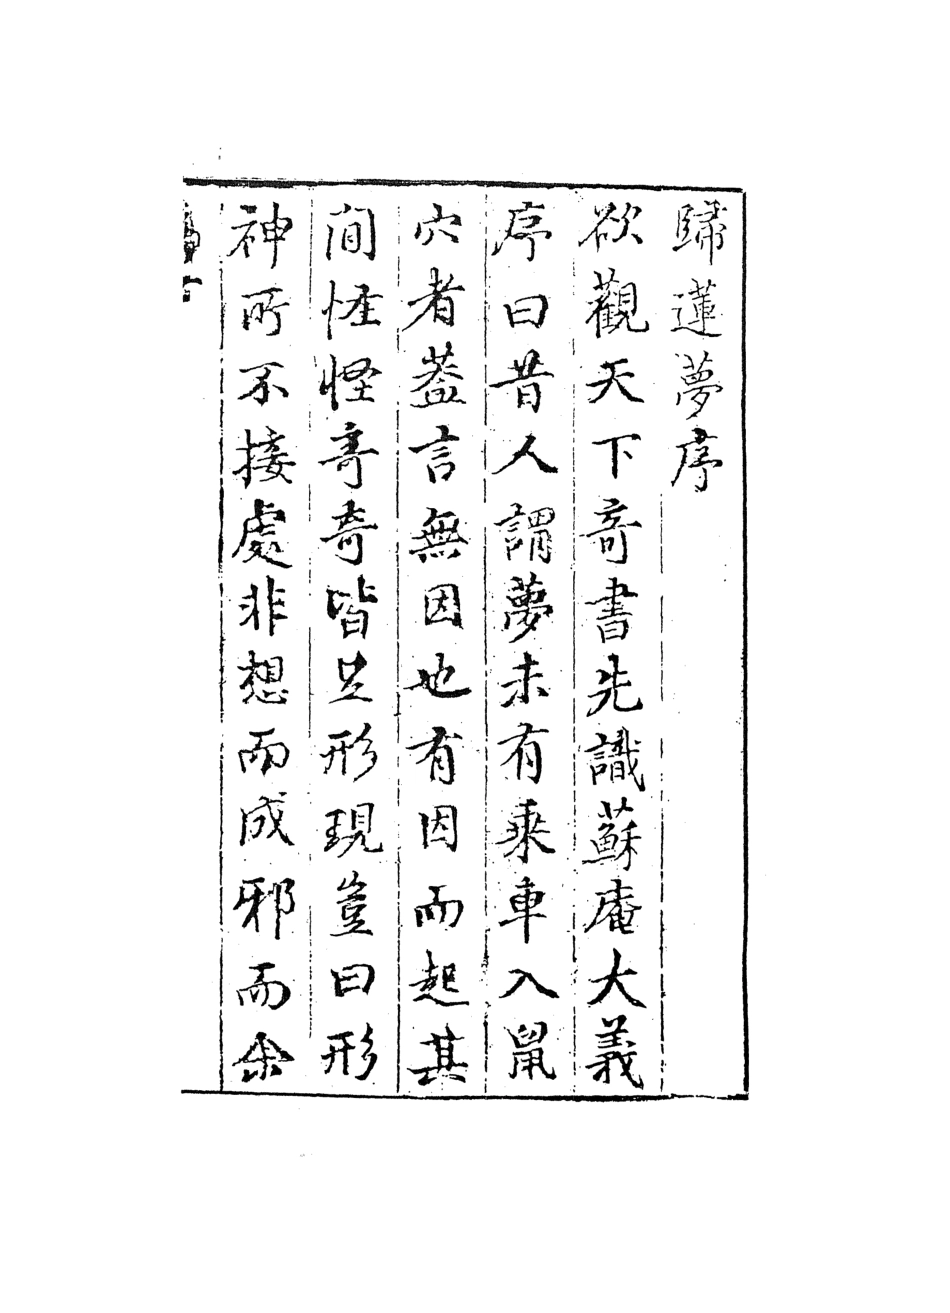 歸蓮夢序
欲觀天下奇書先識蘇庵大義
序曰昔人謂夢未有乗車入鼠
穴者葢言無因也有因而起其
間怪怪竒竒皆其形現豈曰形
神所不接處非想而成邪而余